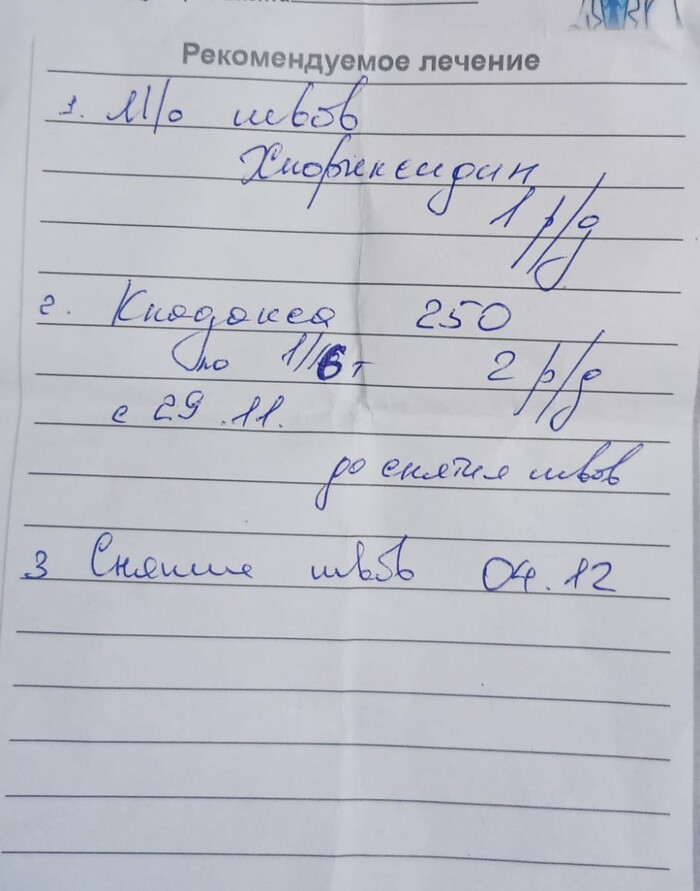 Рекомендуемое лечение
1. М/о швов
Хлоргексидин
1 р/д
2. Кладакса 250
по 1/6 т 2 р/д
с 29.11.
до снятия швов
3 Снятие швов 04.12